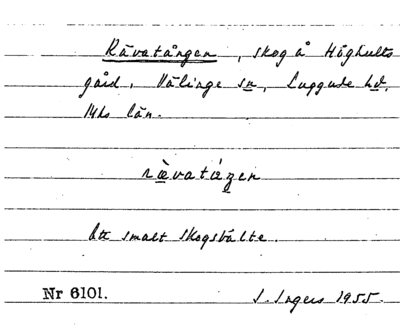 Rävatången, skog å Höghults
gård, Välinge sn, Luggude hd,
Mhs län.
rävatáŋen
Ett smalt skogsbälte.
Nr 6101. I. Ingers 1955.